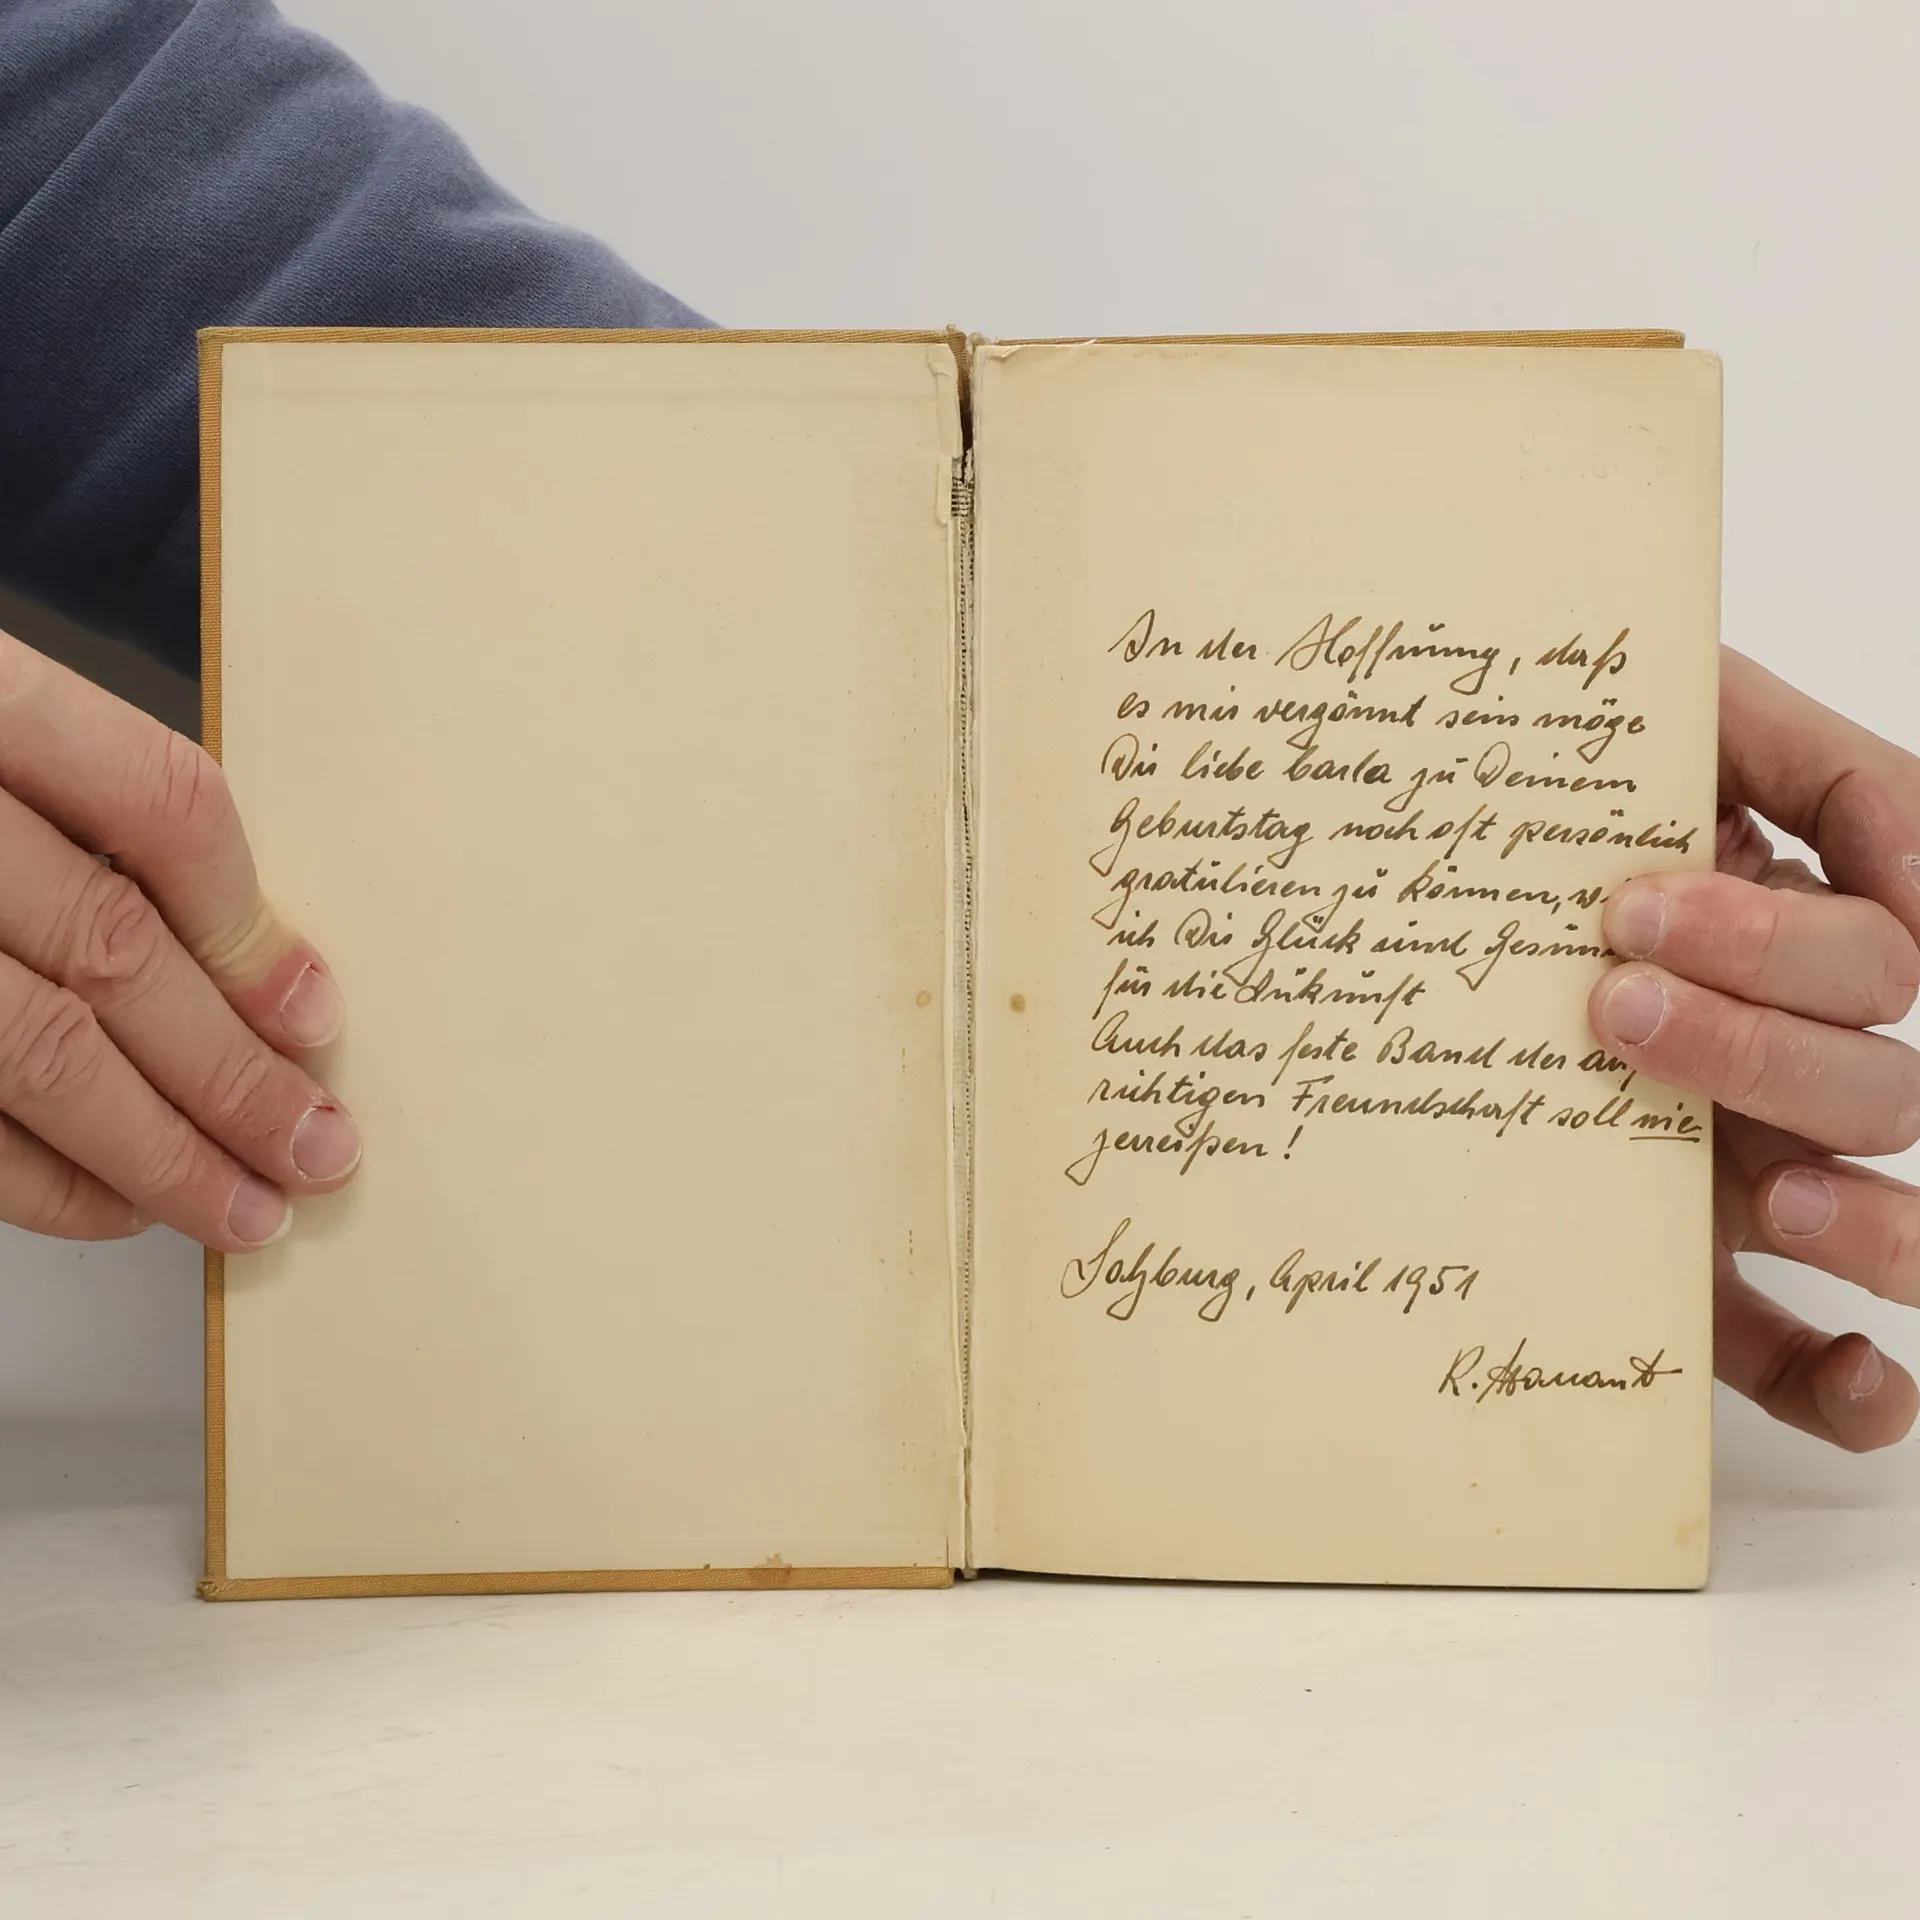 In der Hoffnung, daß
es mir vergönnt sein möge
Dir liebe Carla zu Deinem
Geburtstag noch oft persönlich
gratulieren zu können,
ich Dir Glück und
für die Zukunft
Auch das feste Band der auf
richtigen Freundschaft soll nie
zerreißen!
Salzburg, April 1951
R.